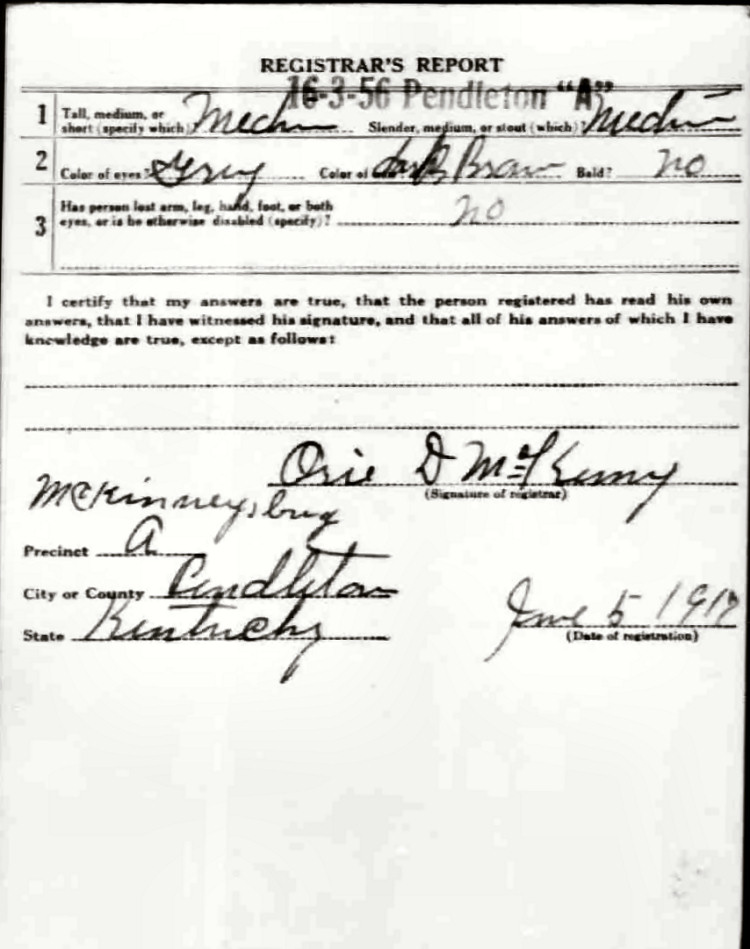 REGISTRAR'S REPORT
16-3-56 Pendleton "A"
1 Tall, medium, or short (specify which) Medium Slender, medium, or stout (which)? Medium
2 Color of eyes? Grey Color of Dark Brown Bald? no
3 Has person lost arm, leg, hand, foot, or both
eyes, or is he otherwise disabled (specify)? no
I certify that my answers are true, that the person registered has read his own
answers, that I have witnessed his signature, and that all of his answers of which I have
knowledge are true, except as follows:
Orie D
(Signature of registrar)
McKinneysburg
Precinct A
City or County Pendleton
State Kentucky
June 5 1917
(Date of registration)